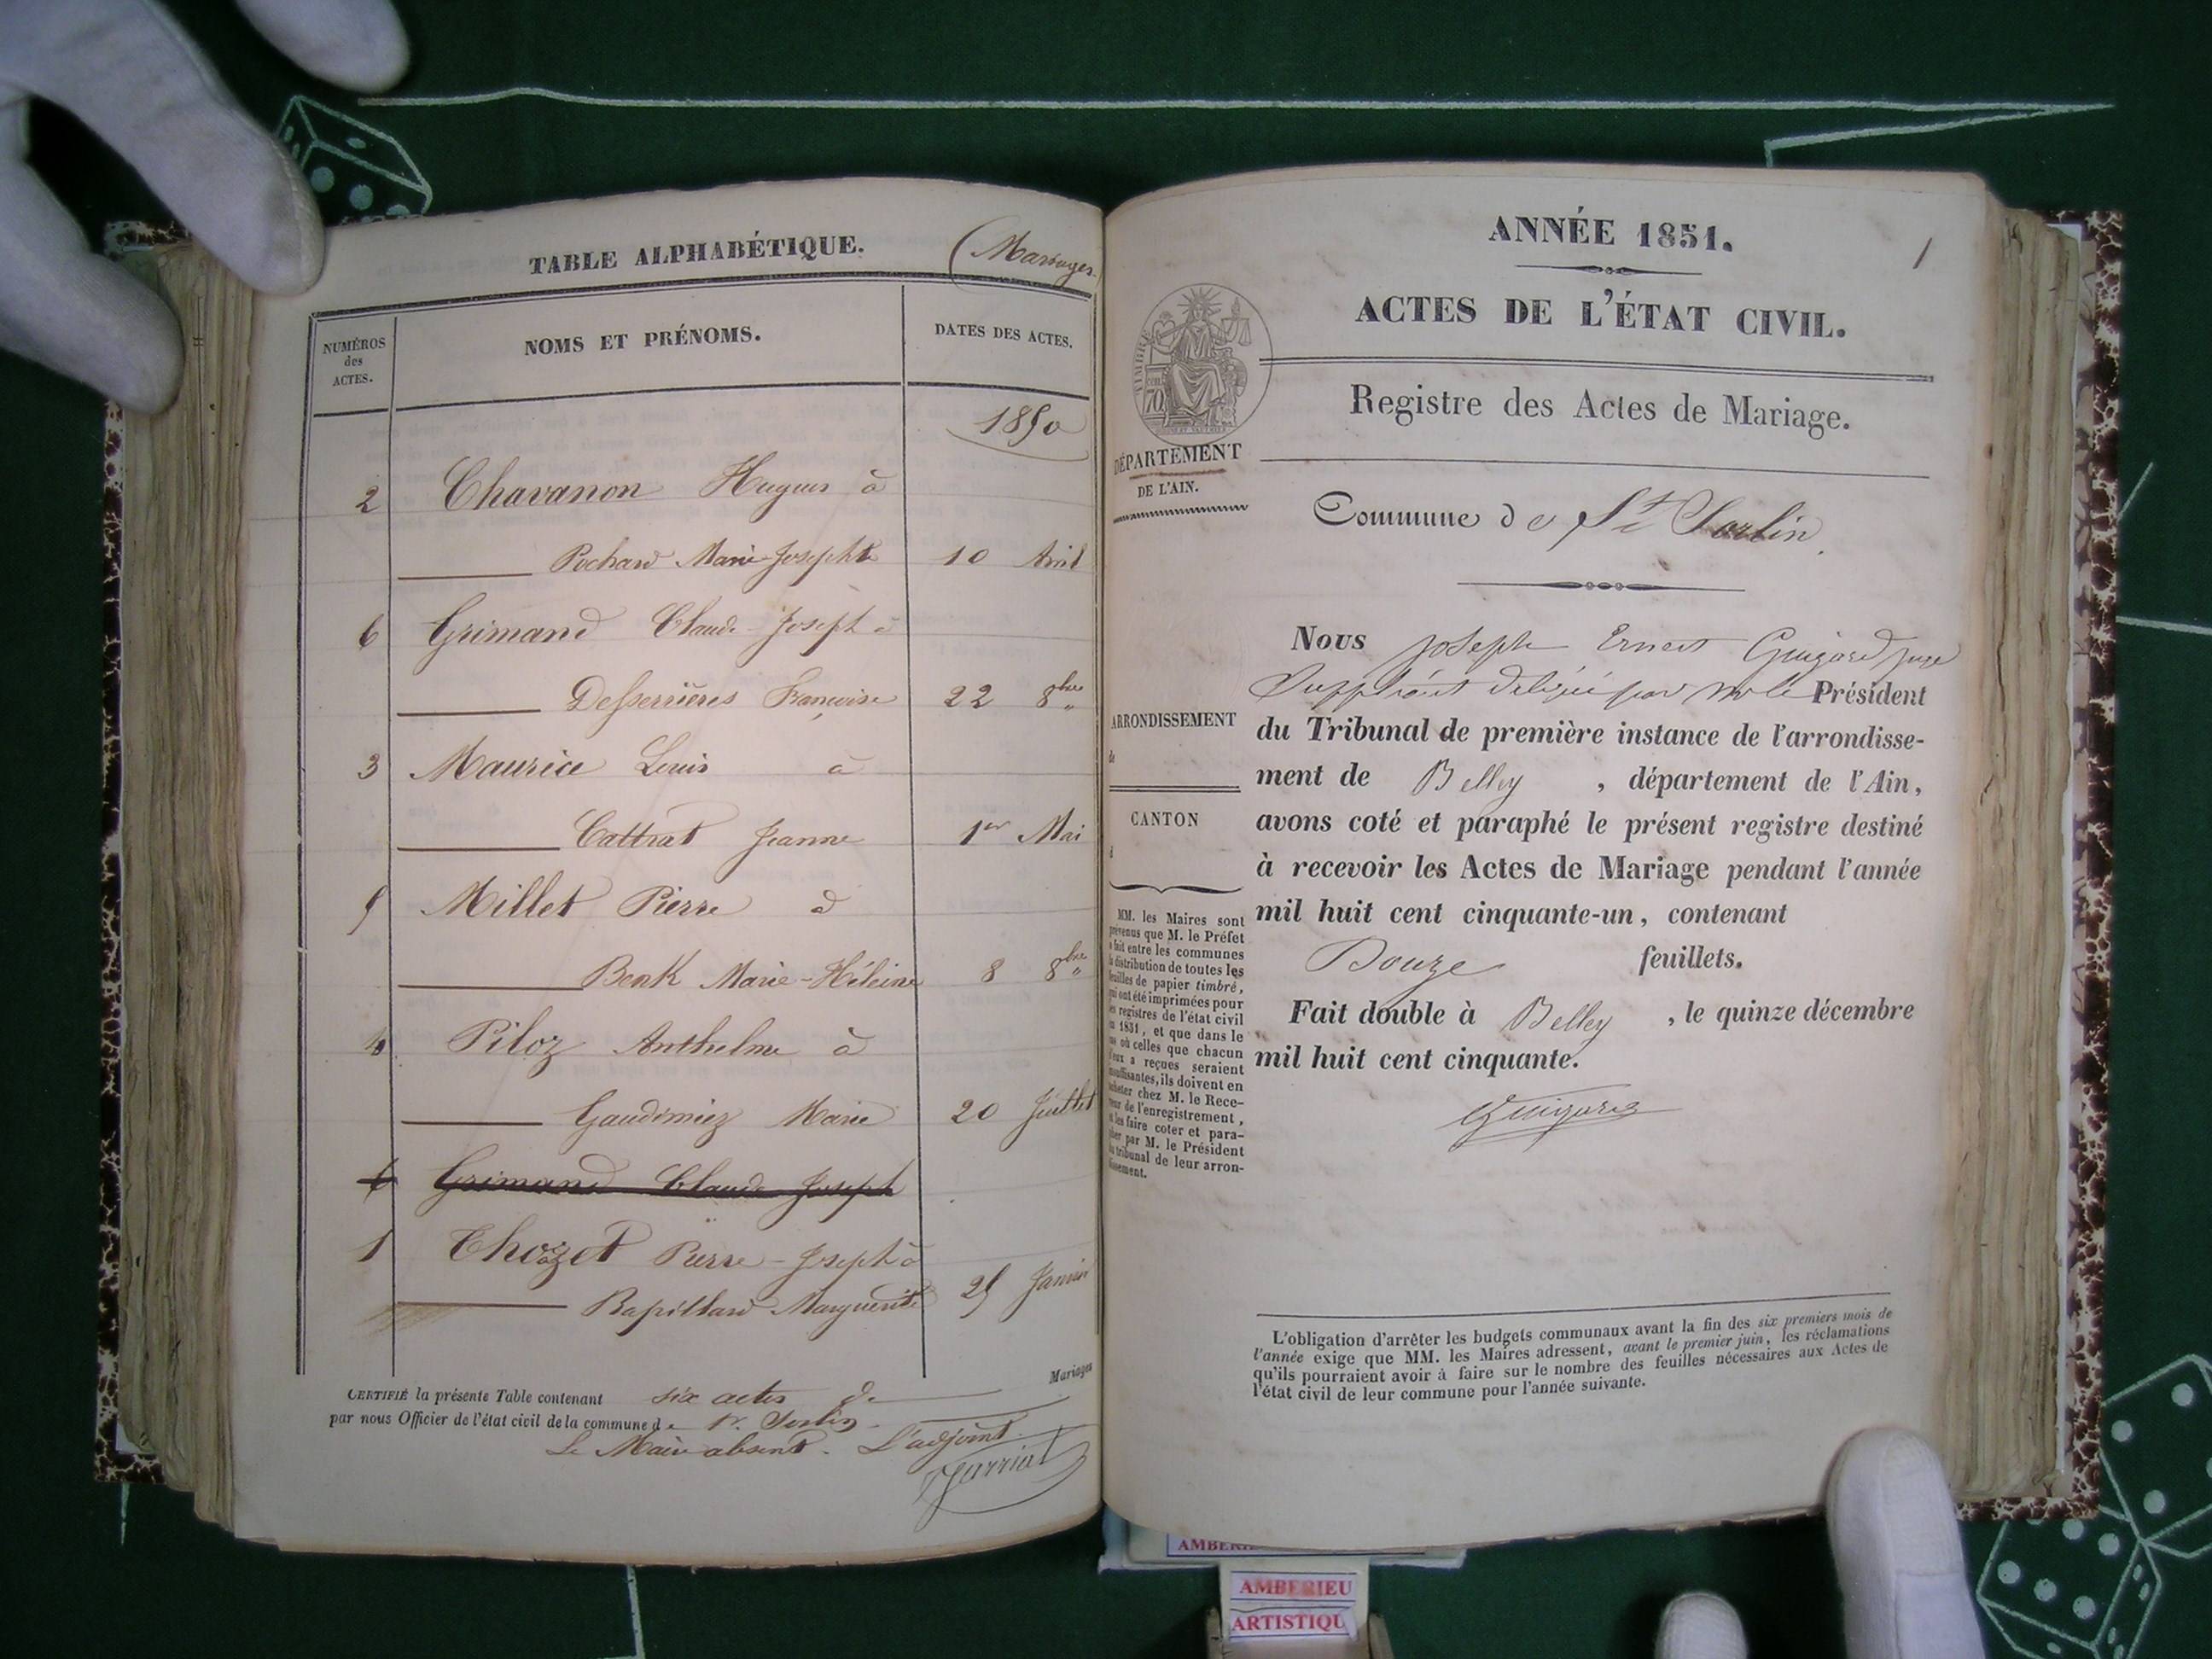 TABLE ALPHABÉTIQUE.
(Mariages.
NUMÉROS
des
ACTES.
NOMS ET PRÉNOMS.
DATES DES ACTES.
1850
2 Chavanon Hugues à
Pochard Marie-Josephte 10 Avril
6 Grimand Claude-Joseph à
Desserrières Françoise 22 8bre
3 Maurice Louis à
Cattrat Jeanne 1er Mai
5 Millet Pierre à
Benk Marie-Héleine 8 8bre
4 Piloz Anthelme à
Gaudimiez Marie 20 Juillet
6 Grimand Claude Joseph
1 Chozet Pierre-Joseph à
Rapillard Marguerite 25 Janvier
Mariages
CERTIFIÉ la présente Table contenant six actes de
par nous Officier de l'état civil de la commune de St. Sorlin
Le Maire absent. L'adjoint
Jarriat
1
ANNÉE 1851.
ACTES DE L'ÉTAT CIVIL.
TIMBRE
70
Registre des Actes de Mariage.
DÉPARTEMENT
DE L'AIN.
Commune de St Sorlin
ARRONDISSEMENT
de
CANTON
d
MM. les Maires sont
prévenus que M. le Préfet
a fait entre les communes
la distribution de toutes les
feuilles de papier timbré,
qui ont été imprimées pour
les registres de l'état civil
en 1851, et que dans le
cas où celles que chacun
d'eux a reçues seraient
insuffisantes, ils doivent en
acheter chez M. le Rece-
veur de l'enregistrement,
et les faire coter et para-
pher par M. le Président
du tribunal de leur arron-
dissement.
Nous Joseph Ernest Guigard juge
Suppléant délégué par Mr le Président
du Tribunal de première instance de l'arrondisse-
ment de Belley , département de l'Ain,
avons coté et paraphé le présent registre destiné
à recevoir les Actes de Mariage pendant l'année
mil huit cent cinquante-un, contenant
Douze feuillets.
Fait double à Belley , le quinze décembre
mil huit cent cinquante.
Guigard
L'obligation d'arrêter les budgets communaux avant la fin des six premiers mois de
l'année exige que MM. les Maires adressent, avant le premier juin, les réclamations
qu'ils pourraient avoir à faire sur le nombre des feuilles nécessaires aux Actes de
l'état civil de leur commune pour l'année suivante.
AMBERIEU
ARTISTIQU